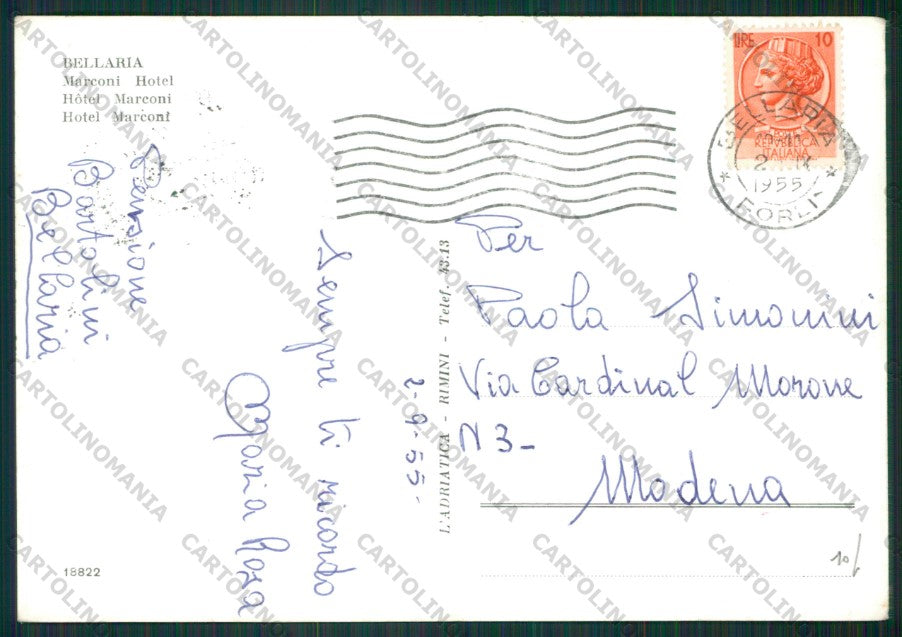 BELLARIA
Marconi Hotel
Hôtel Marconi
Hotel Marconi
Pensione
Bartolini
Bellaria
Sempre ti ricordo
Maria Rosa
2-9-55-
L'ADRIATICA - RIMINI - Telef. 43.13
LIRE 10
REPUBBLICA
ITALIANA
BELLARIA
1955
FORLI
Per
Paola Simonini
Via Cardinal Morone
N 3-
Modena
18822
10/
CARTOLINOMANIA